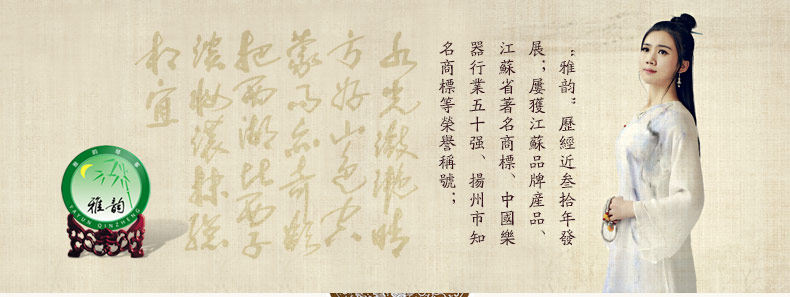 “雅韵”歷經近叁拾年發
展；屢獲江蘇品牌産品、
江蘇省著名商標、中國樂
器行業五十强、揚州市知
名商標等榮譽稱號；
水光潋滟晴
方好山色空
蒙雨亦可奇
把西湖比西子
淡妝濃抹總
相宜
雅韵
YAYUN QINZHENG